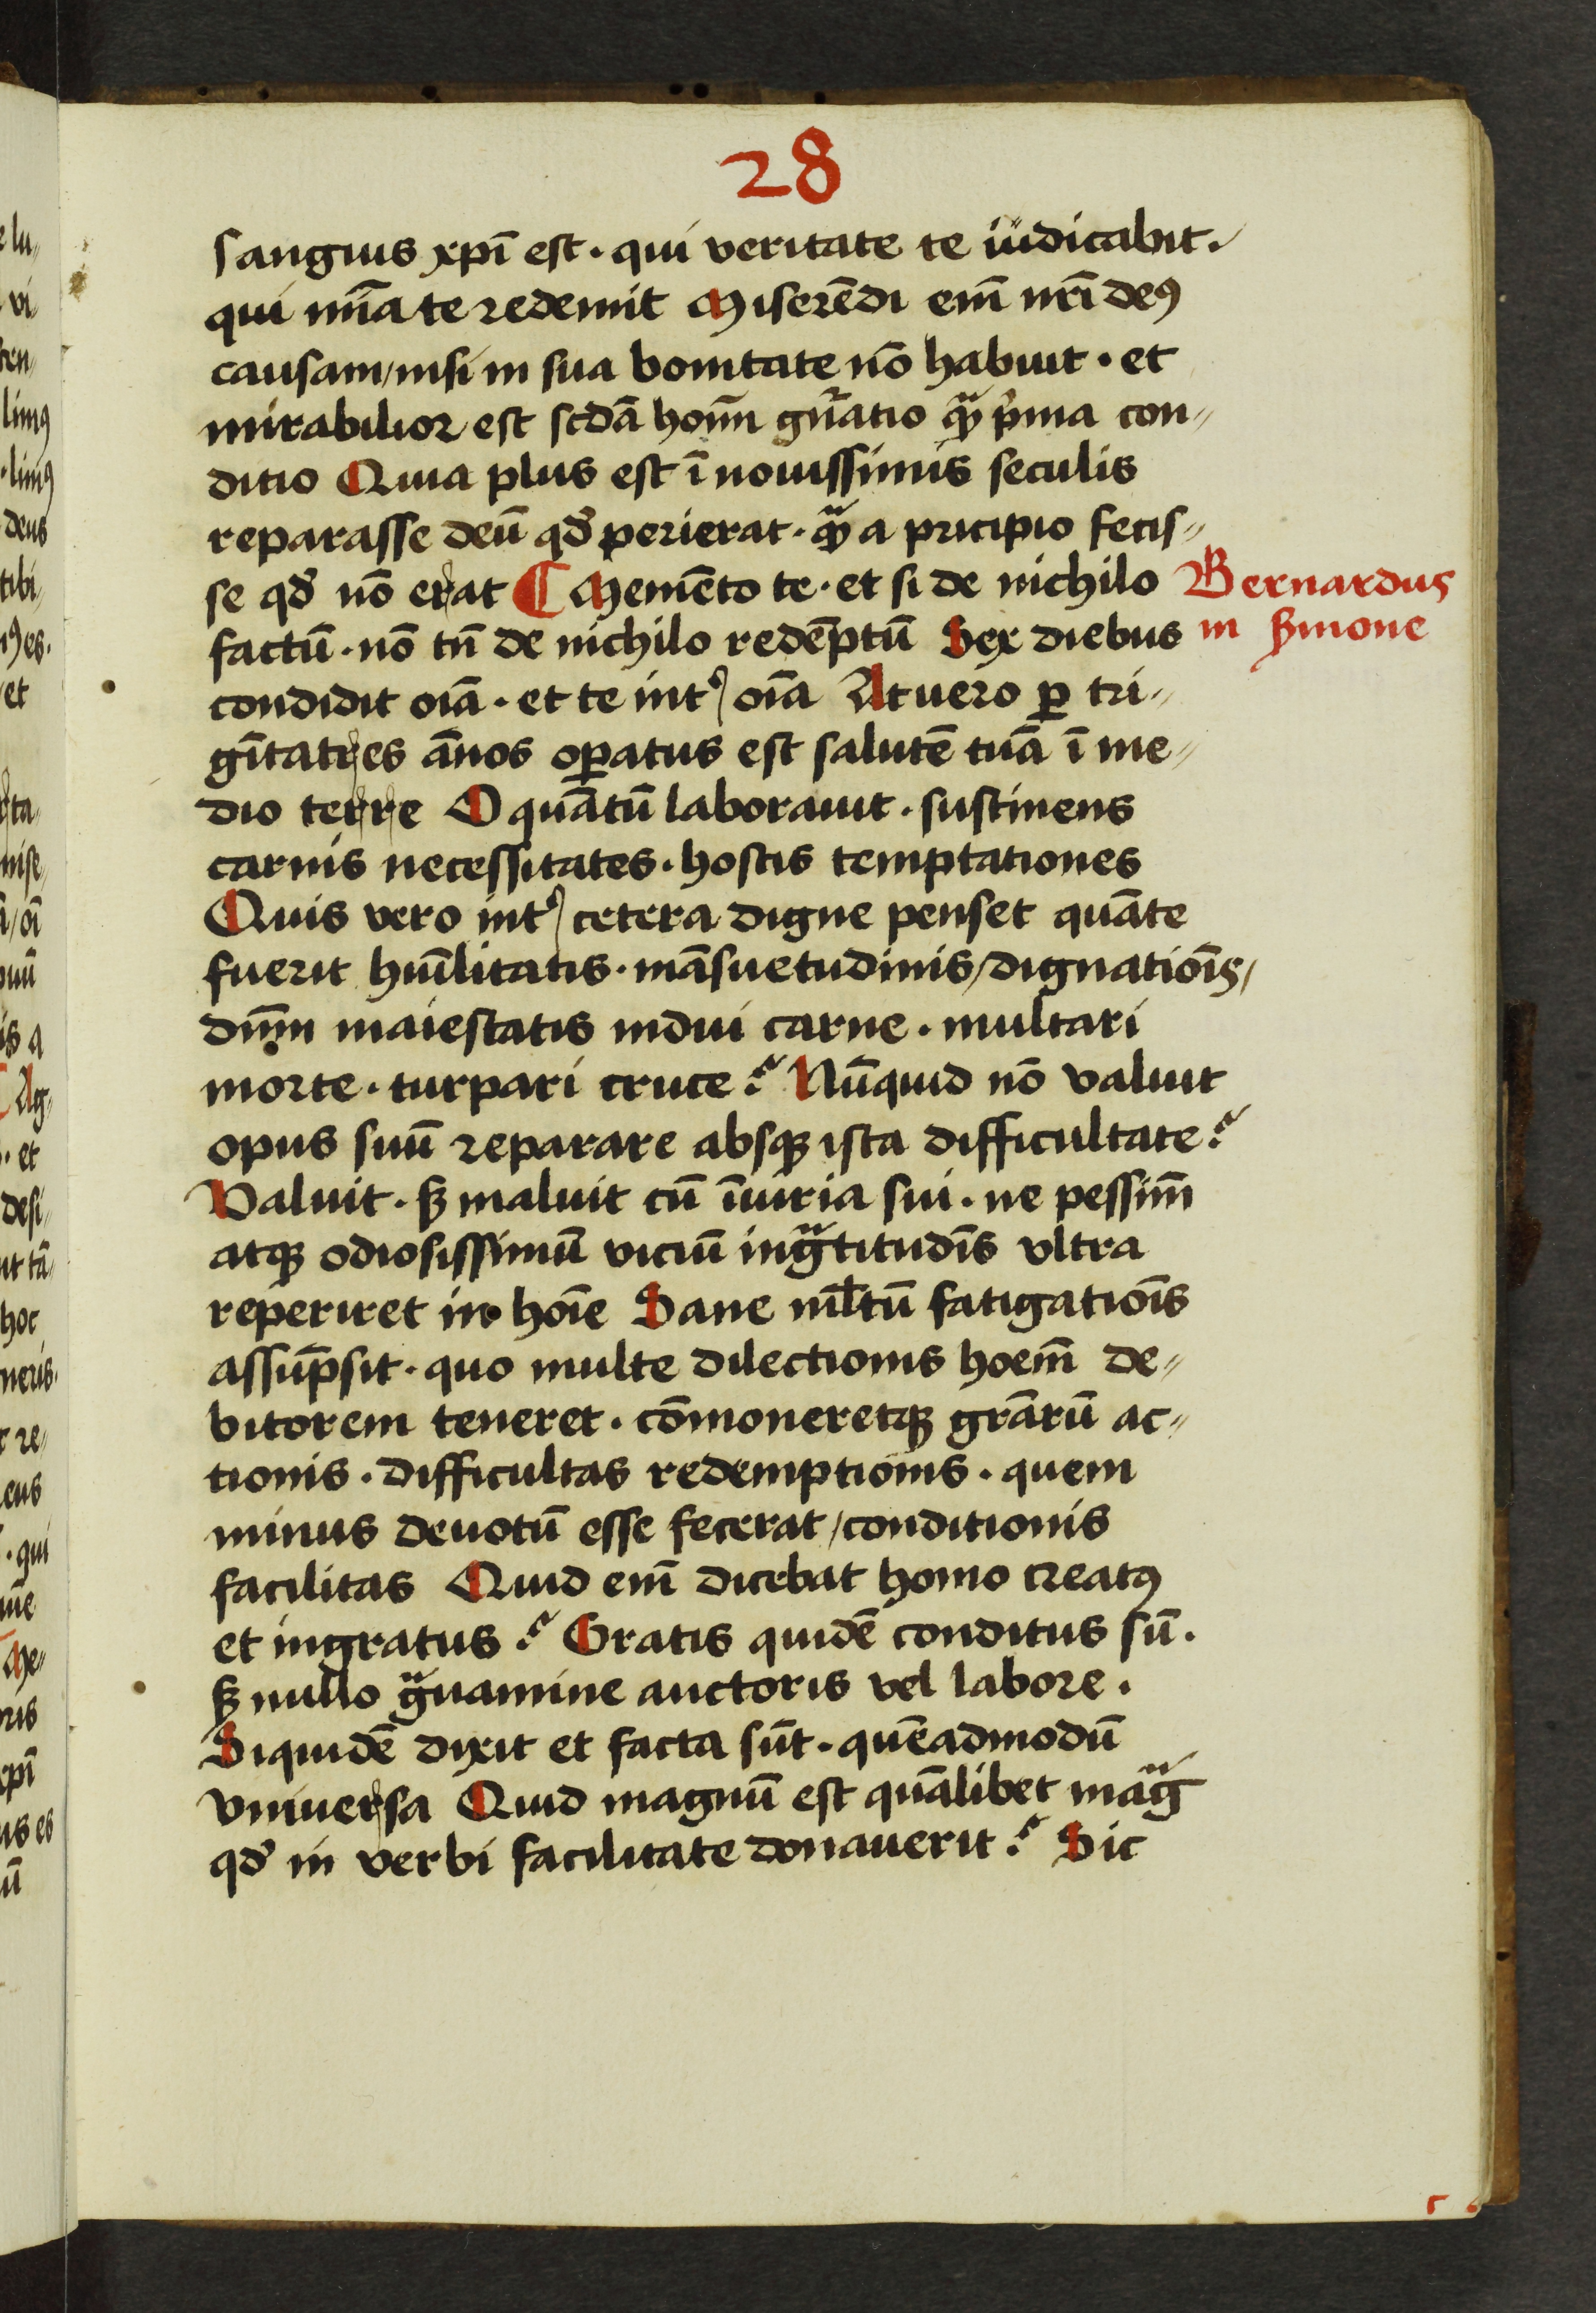 28
sangius xpī est · qui veritate te iudicabit ·
qui mīa te redemit Miserēdi em̄ nr̄i deꝰ
causam / nisi in sua bonitate nō habuit · et
mirabilior est scdā hoīm gn̄atio qᷓ pͥma con〃
ditio Quia plus est ī nouissimis seculis
reparasse deū qđ perierat · qᷓ a pricipio fecis〃
se qđ nō erat ¶ Memēto te · et si de nichilo
Bernardus
factū · nō tn̄ de nichilo redēptū Sex diebus
in ẜmone
condidit oīa · et te intꝰ oīa At uero ꝑ tri〃
gītatres ānos oꝑatus est salutē tuā ī me〃
dio terre O quātū laborauit · sustinens
carnis necessitates · hostis temptationes
Quis vero intꝰ cetera digne penset quāte
fuerit hūilitatis · māsuetudinis / dignatiōis /
dn̄m maiestatis indui carne · multari
morte · turpari cruce ? Nūquid nō valuit
opus suū reparare absqꝫ ista difficultate ?
Valuit · ẜ maluit cū īiuria sui · ne pessim̄
atqꝫ odiosissimū viciū ingᷓtitudīs vltra
reperiret in hoīe Sane ml̄tū fatigatiōis
assūpsit · quo multe dilectionis hoēm de〃
bitorem teneret · cōmoneretqꝫ grārū ac〃
tionis · difficultas redemptionis · quem
minus deuotū esse fecerat / conditionis
facilitas Quid em̄ dicebat homo creatꝰ
et ingratus ? Gratis quidē conditus sū ·
ẜ nullo gᷓuamine auctoris vel labore ·
Siquidē dixit et facta sūt · quēadmodū
vniuersa Quid magnū est quālibet magᷓ
qđ in verbi facilitate donauerit ? Sic